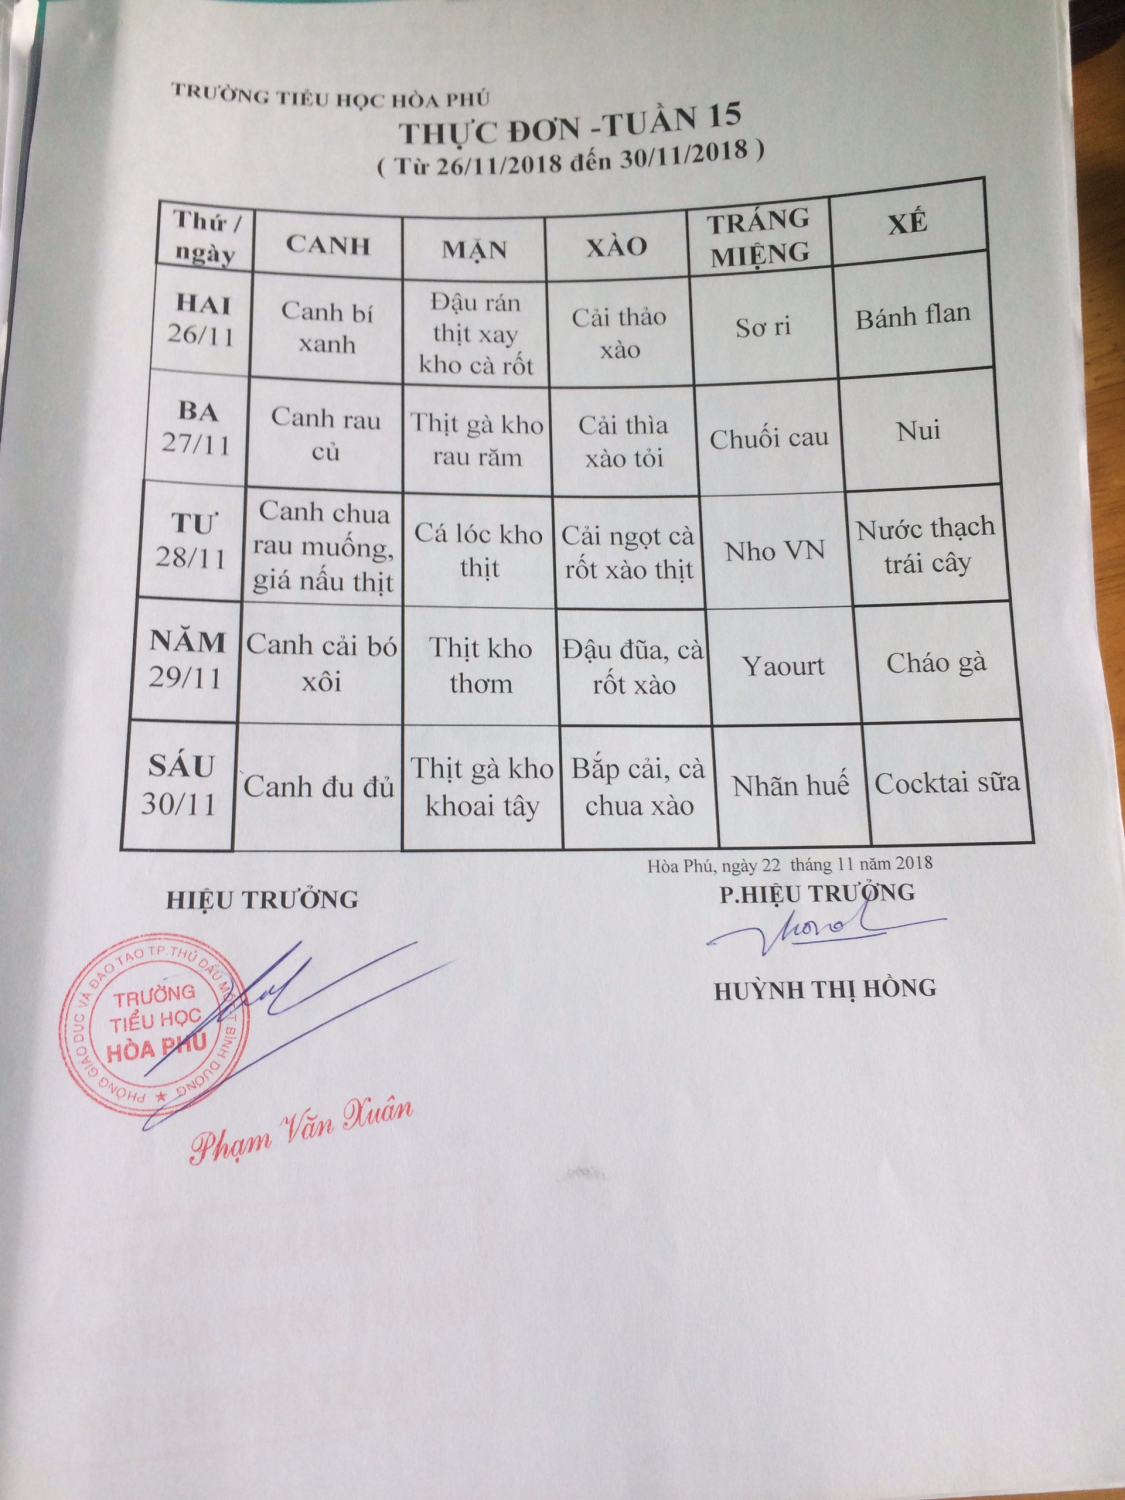 TRƯỜNG TIỂU HỌC HÒA PHÚ
THỰC ĐƠN -TUẦN 15
( Từ 26/11/2018 đến 30/11/2018 )
Thứ / ngày CANH MẶN XÀO TRÁNG MIỆNG XẾ
HAI 26/11 Canh bí xanh Đậu rán thịt xay kho cà rốt Cải thảo xào Sơ ri Bánh flan
BA 27/11 Canh rau củ Thịt gà kho rau răm Cải thìa xào tỏi Chuối cau Nui
TƯ 28/11 Canh chua rau muống, giá nấu thịt Cá lóc kho thịt Cải ngọt cà rốt xào thịt Nho VN Nước thạch trái cây
NĂM 29/11 Canh cải bó xôi Thịt kho thơm Đậu đũa, cà rốt xào Yaourt Cháo gà
SÁU 30/11 Canh đu đủ Thịt gà kho khoai tây Bắp cải, cà chua xào Nhãn huế Cocktai sữa
Hòa Phú, ngày 22 tháng 11 năm 2018
HIỆU TRƯỞNG P.HIỆU TRƯỞNG
HUỲNH THỊ HỒNG
PHÒNG GIÁO DỤC VÀ ĐÀO TẠO TP.THỦ DẦU MỘT.T.BÌNH DƯƠNG
TRƯỜNG
TIỂU HỌC
HÒA PHÚ
Phạm Văn Xuân